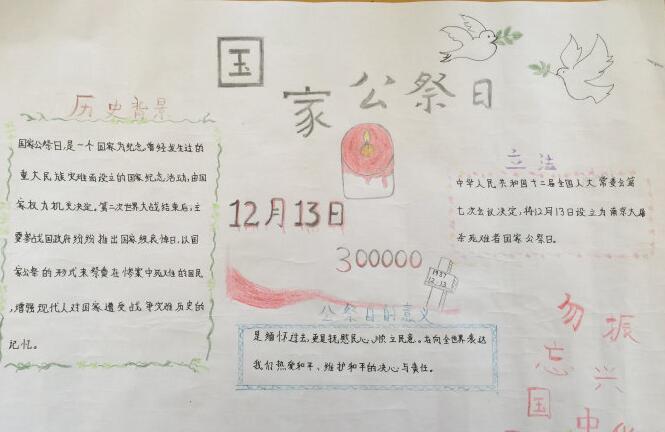 国家公祭日
历史背景
国家公祭日,是一个国家为纪念曾经发生过的
重大民族灾难而设立的国家纪念活动,由国
家权力机关决定。第二次世界大战结束后,主
要参战国政府纷纷推出国家级哀悼日,以国
家公祭的形式来祭奠在惨案中死难的国民
,增强现代人对国家遭受战争灾难历史的
记忆。
立法
中华人民共和国十二届全国人大常委会第
七次会议决定,将12月13日设立为南京大屠
杀死难者国家公祭日。
12月13日
300000
1937
12.13
公祭日的意义
是缅怀过去,更是抚慰民心、顺应民意。在向全世界表达
我们热爱和平、维护和平的决心与责任。
勿忘国
振兴中